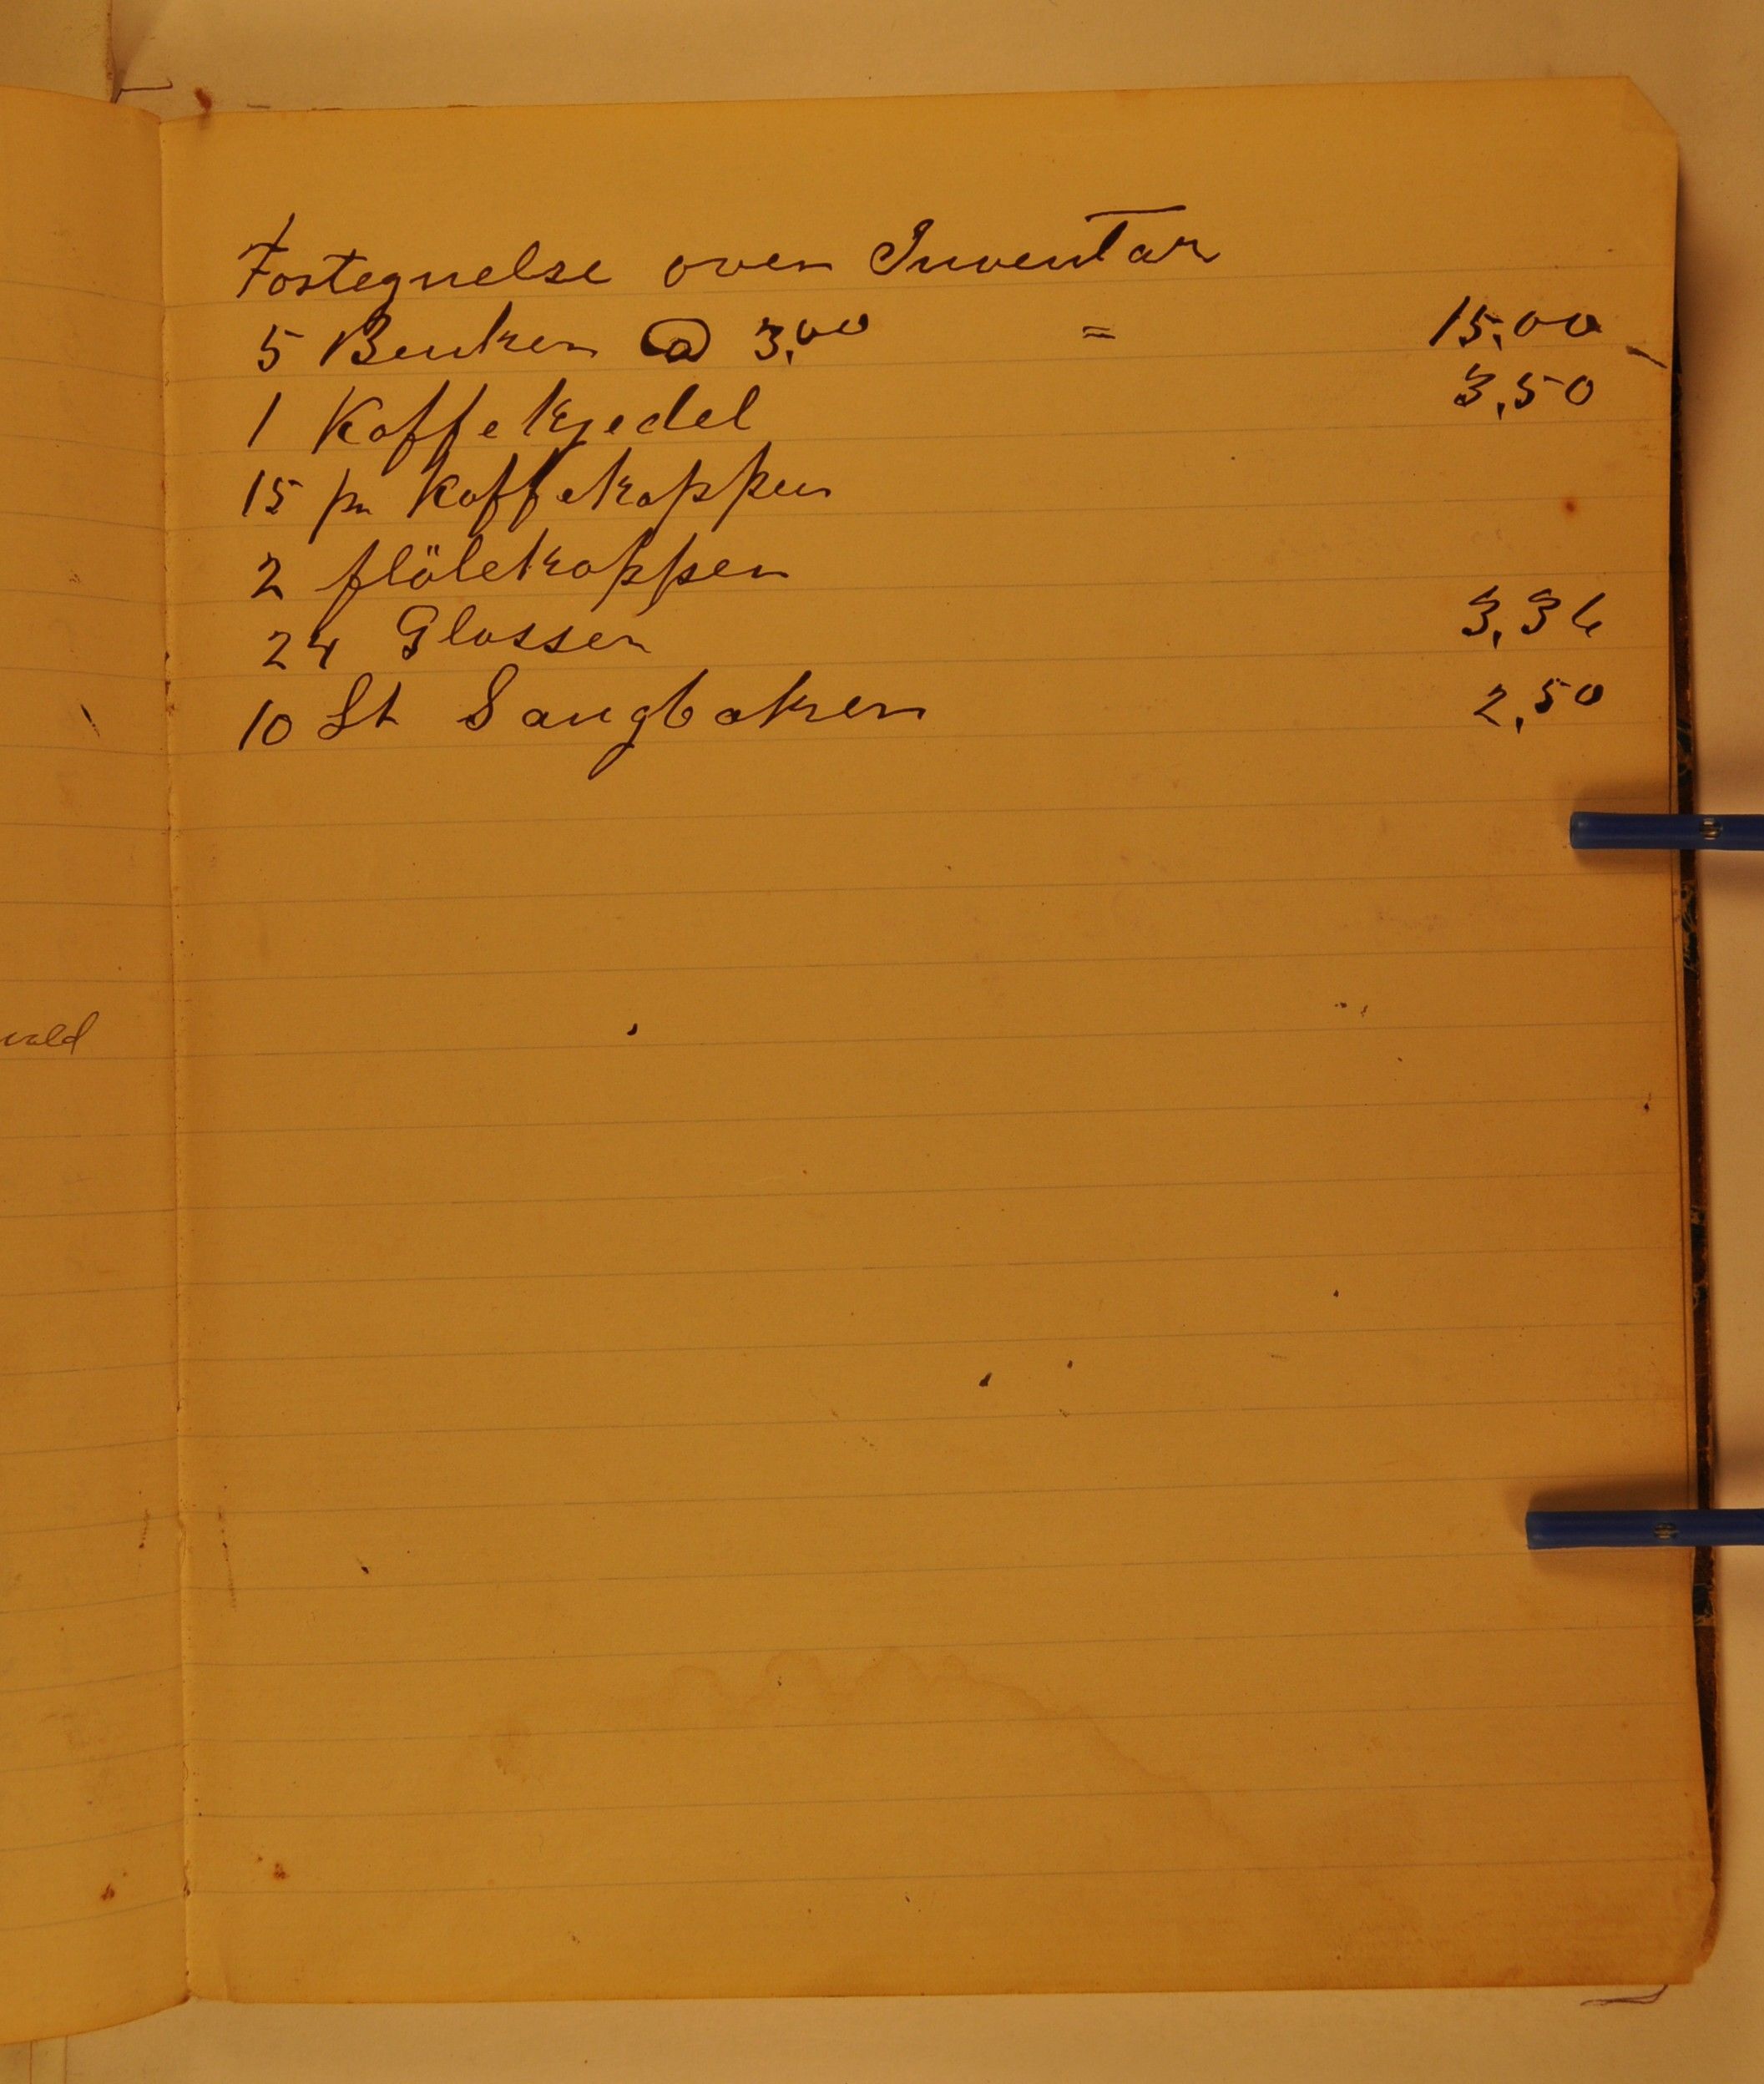 Fortegnelse over Inventar
5 Benker @ 3,00 = 15,00
1 Kaffekjedel 3,50
15 pr Kaffekopper
2 flölekopper
24 Glasser 3,36
10 St Sangbøker 2,50